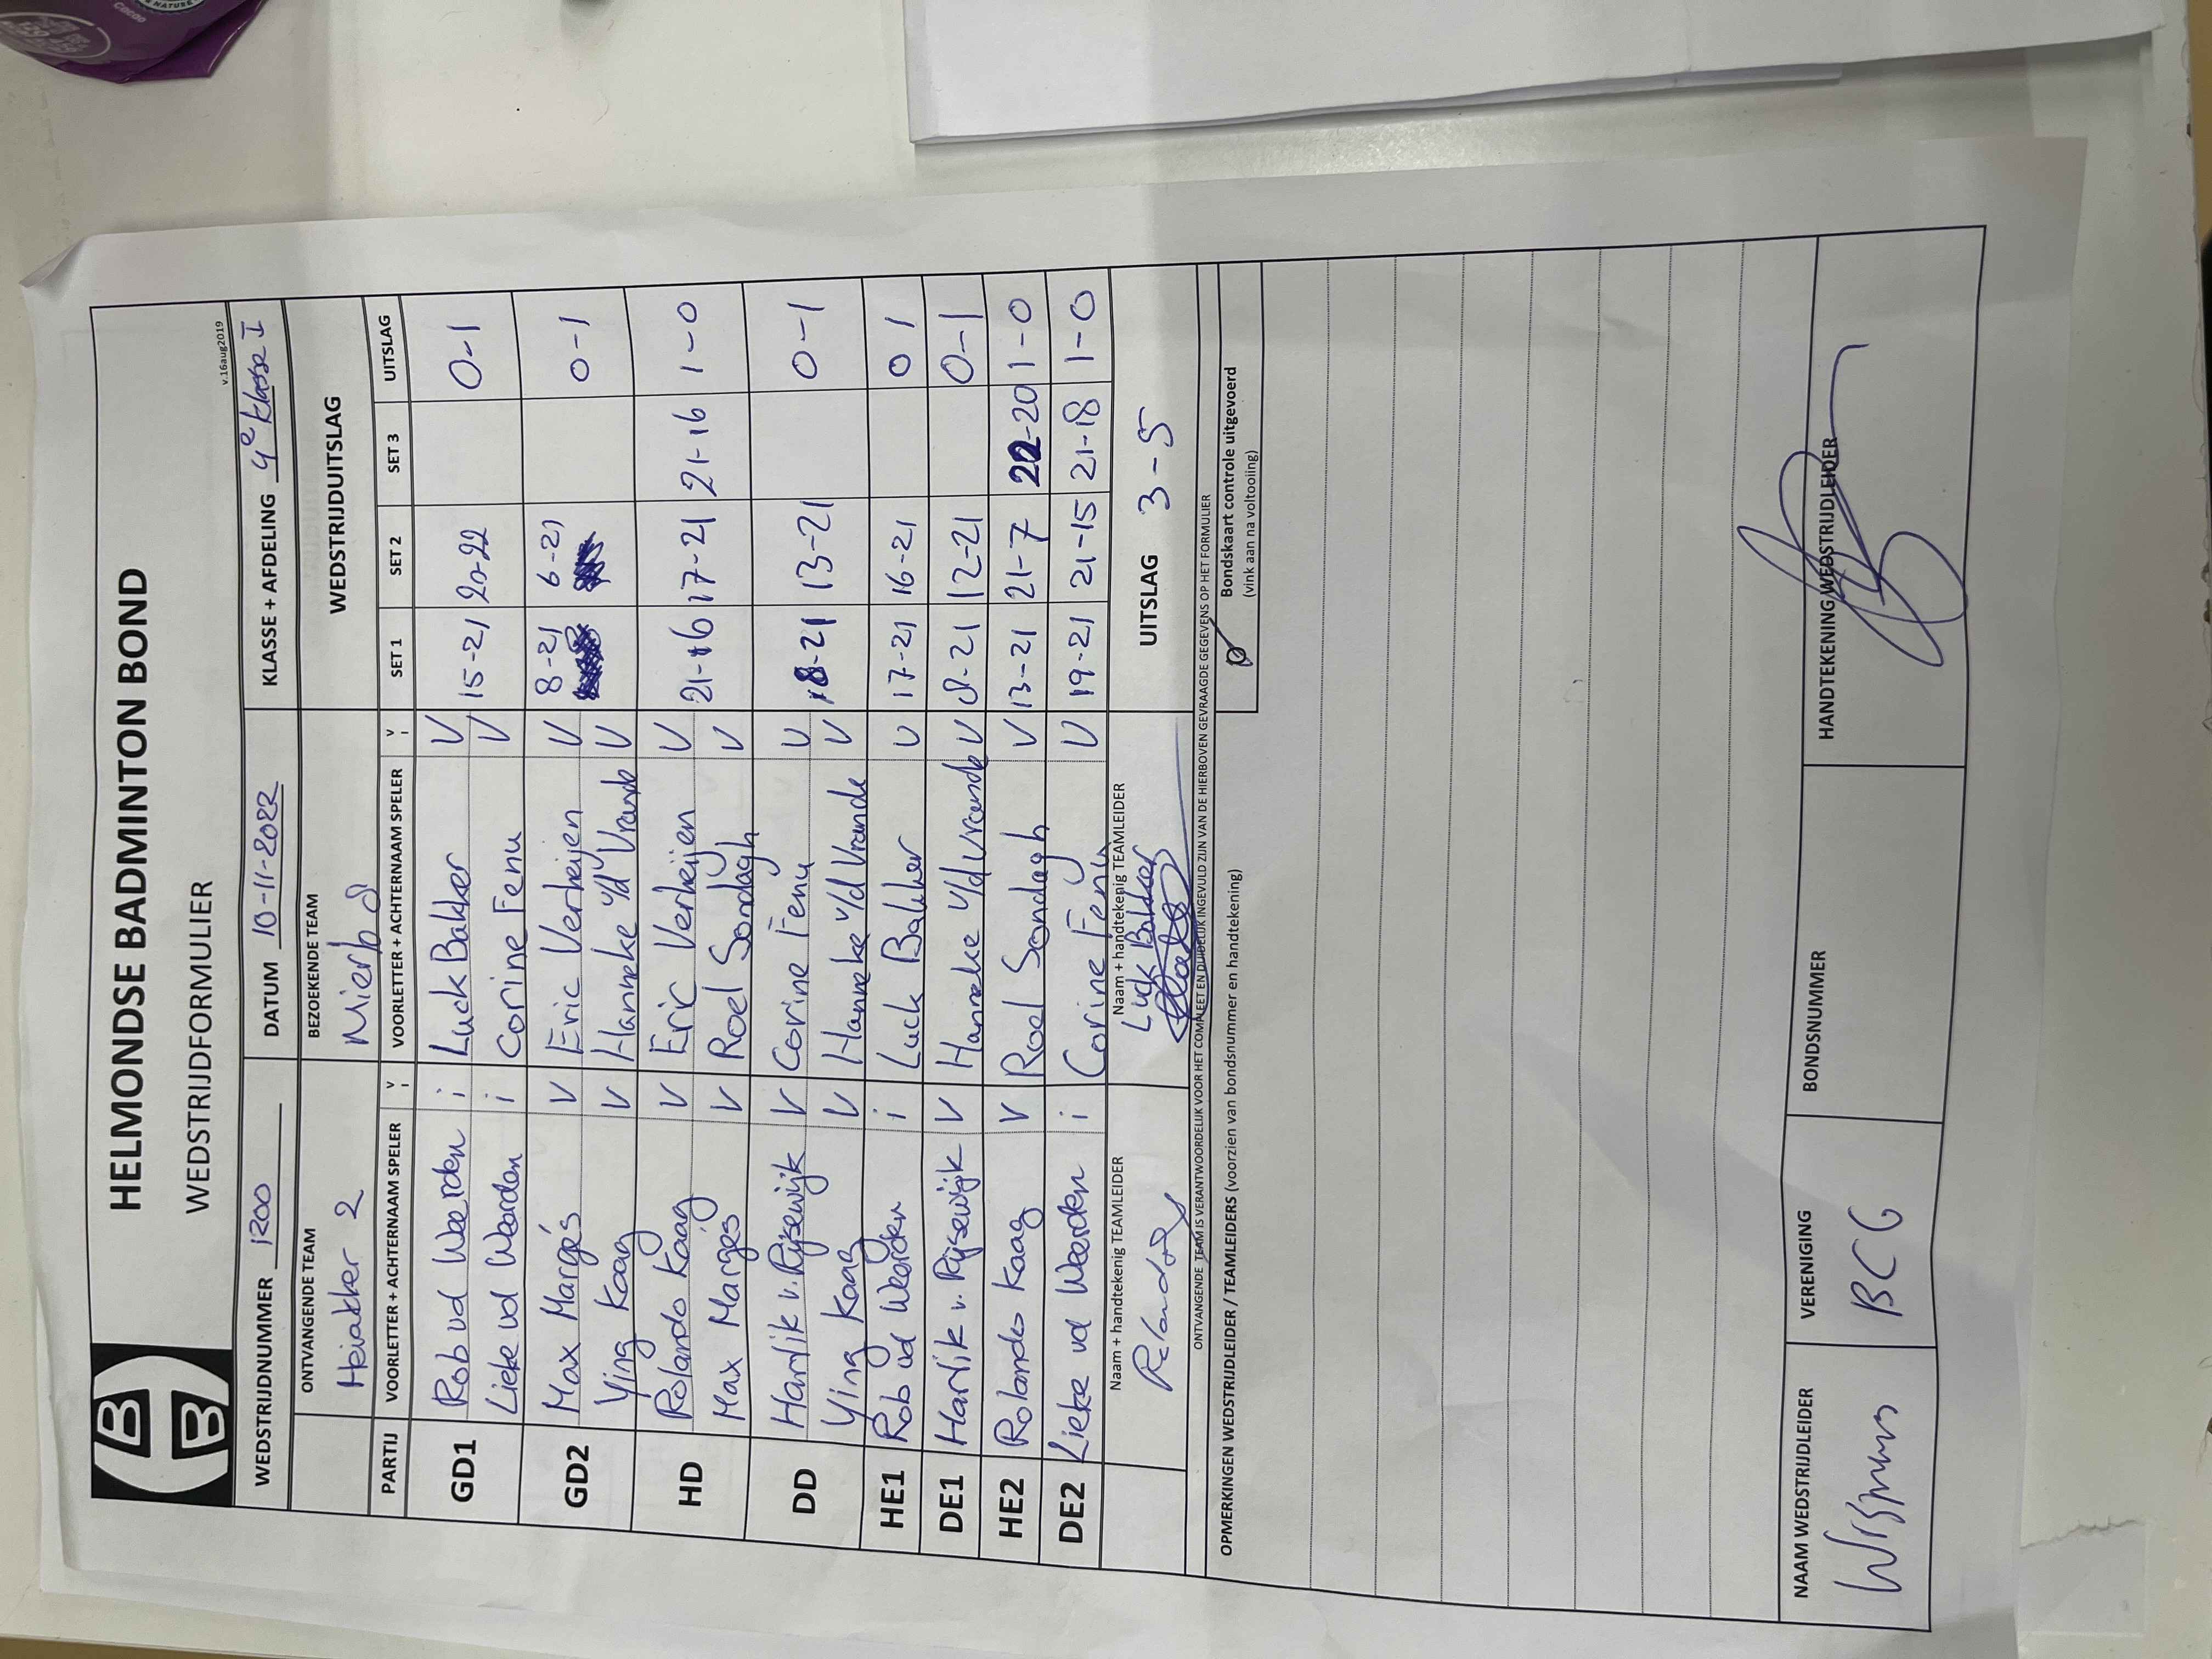 HELMONDSE BADMINTON BOND
WEDSTRIJDFORMULIER
v.16aug2019
WEDSTRIJDNUMMER 1200 DATUM 10-11-2022 KLASSE + AFDELING 4e klasse I
ONTVANGENDE TEAM BEZOEKENDE TEAM WEDSTRIJDUITSLAG
Heiakker 2 Mierlo 8
PARTIJ VOORLETTER + ACHTERNAAM SPELER V I VOORLETTER + ACHTERNAAM SPELER V I SET 1 SET 2 SET 3 UITSLAG
GD1 Rob vd Weerden i Luck Bakker V 15-21 20-22 0-1
Lieke vd Weerden i Corine Fenu V
GD2 Max Margés V Eric Verheijen V 8-21 6-21 0-1
Ying Kaag V Hanneke v/d Vrande V
HD Rolando Kaag V Eric Verheijen V 21-16 17-21 21-16 1-0
Max Margés V Roel Sondagh V
DD Hardik v. Rijsewijk V Corine Fenu V 18-21 13-21 0-1
Ying Kaag V Hanneke v/d Vrande V
HE1 Rob vd Weerden i Luck Bakker V 17-21 16-21 0 1
DE1 Hardik v. Rijsewijk V Hanneke v/d Vrande V 8-21 12-21 0-1
HE2 Rolando Kaag V Roel Sondagh V 13-21 21-7 22-20 1-0
DE2 Lieke vd Weerden i Corine Fenu V 19-21 21-15 21-18 1-0
Naam + handtekenig TEAMLEIDER Naam + handtekenig TEAMLEIDER UITSLAG 3-5
Luck Bakker
ONTVANGENDE TEAM IS VERANTWOORDELIJK VOOR HET COMPLEET EN DUIDELIJK INGEVULD ZIJN VAN DE HIERBOVEN GEVRAAGDE GEGEVENS OP HET FORMULIER
OPMERKINGEN WEDSTRIJDLEIDER / TEAMLEIDERS (voorzien van bondsnummer en handtekening)
Bondskaart controle uitgevoerd
(vink aan na voltooiing)
NAAM WEDSTRIJDLEIDER VERENIGING BONDSNUMMER HANDTEKENING WEDSTRIJDLEIDER
BCG